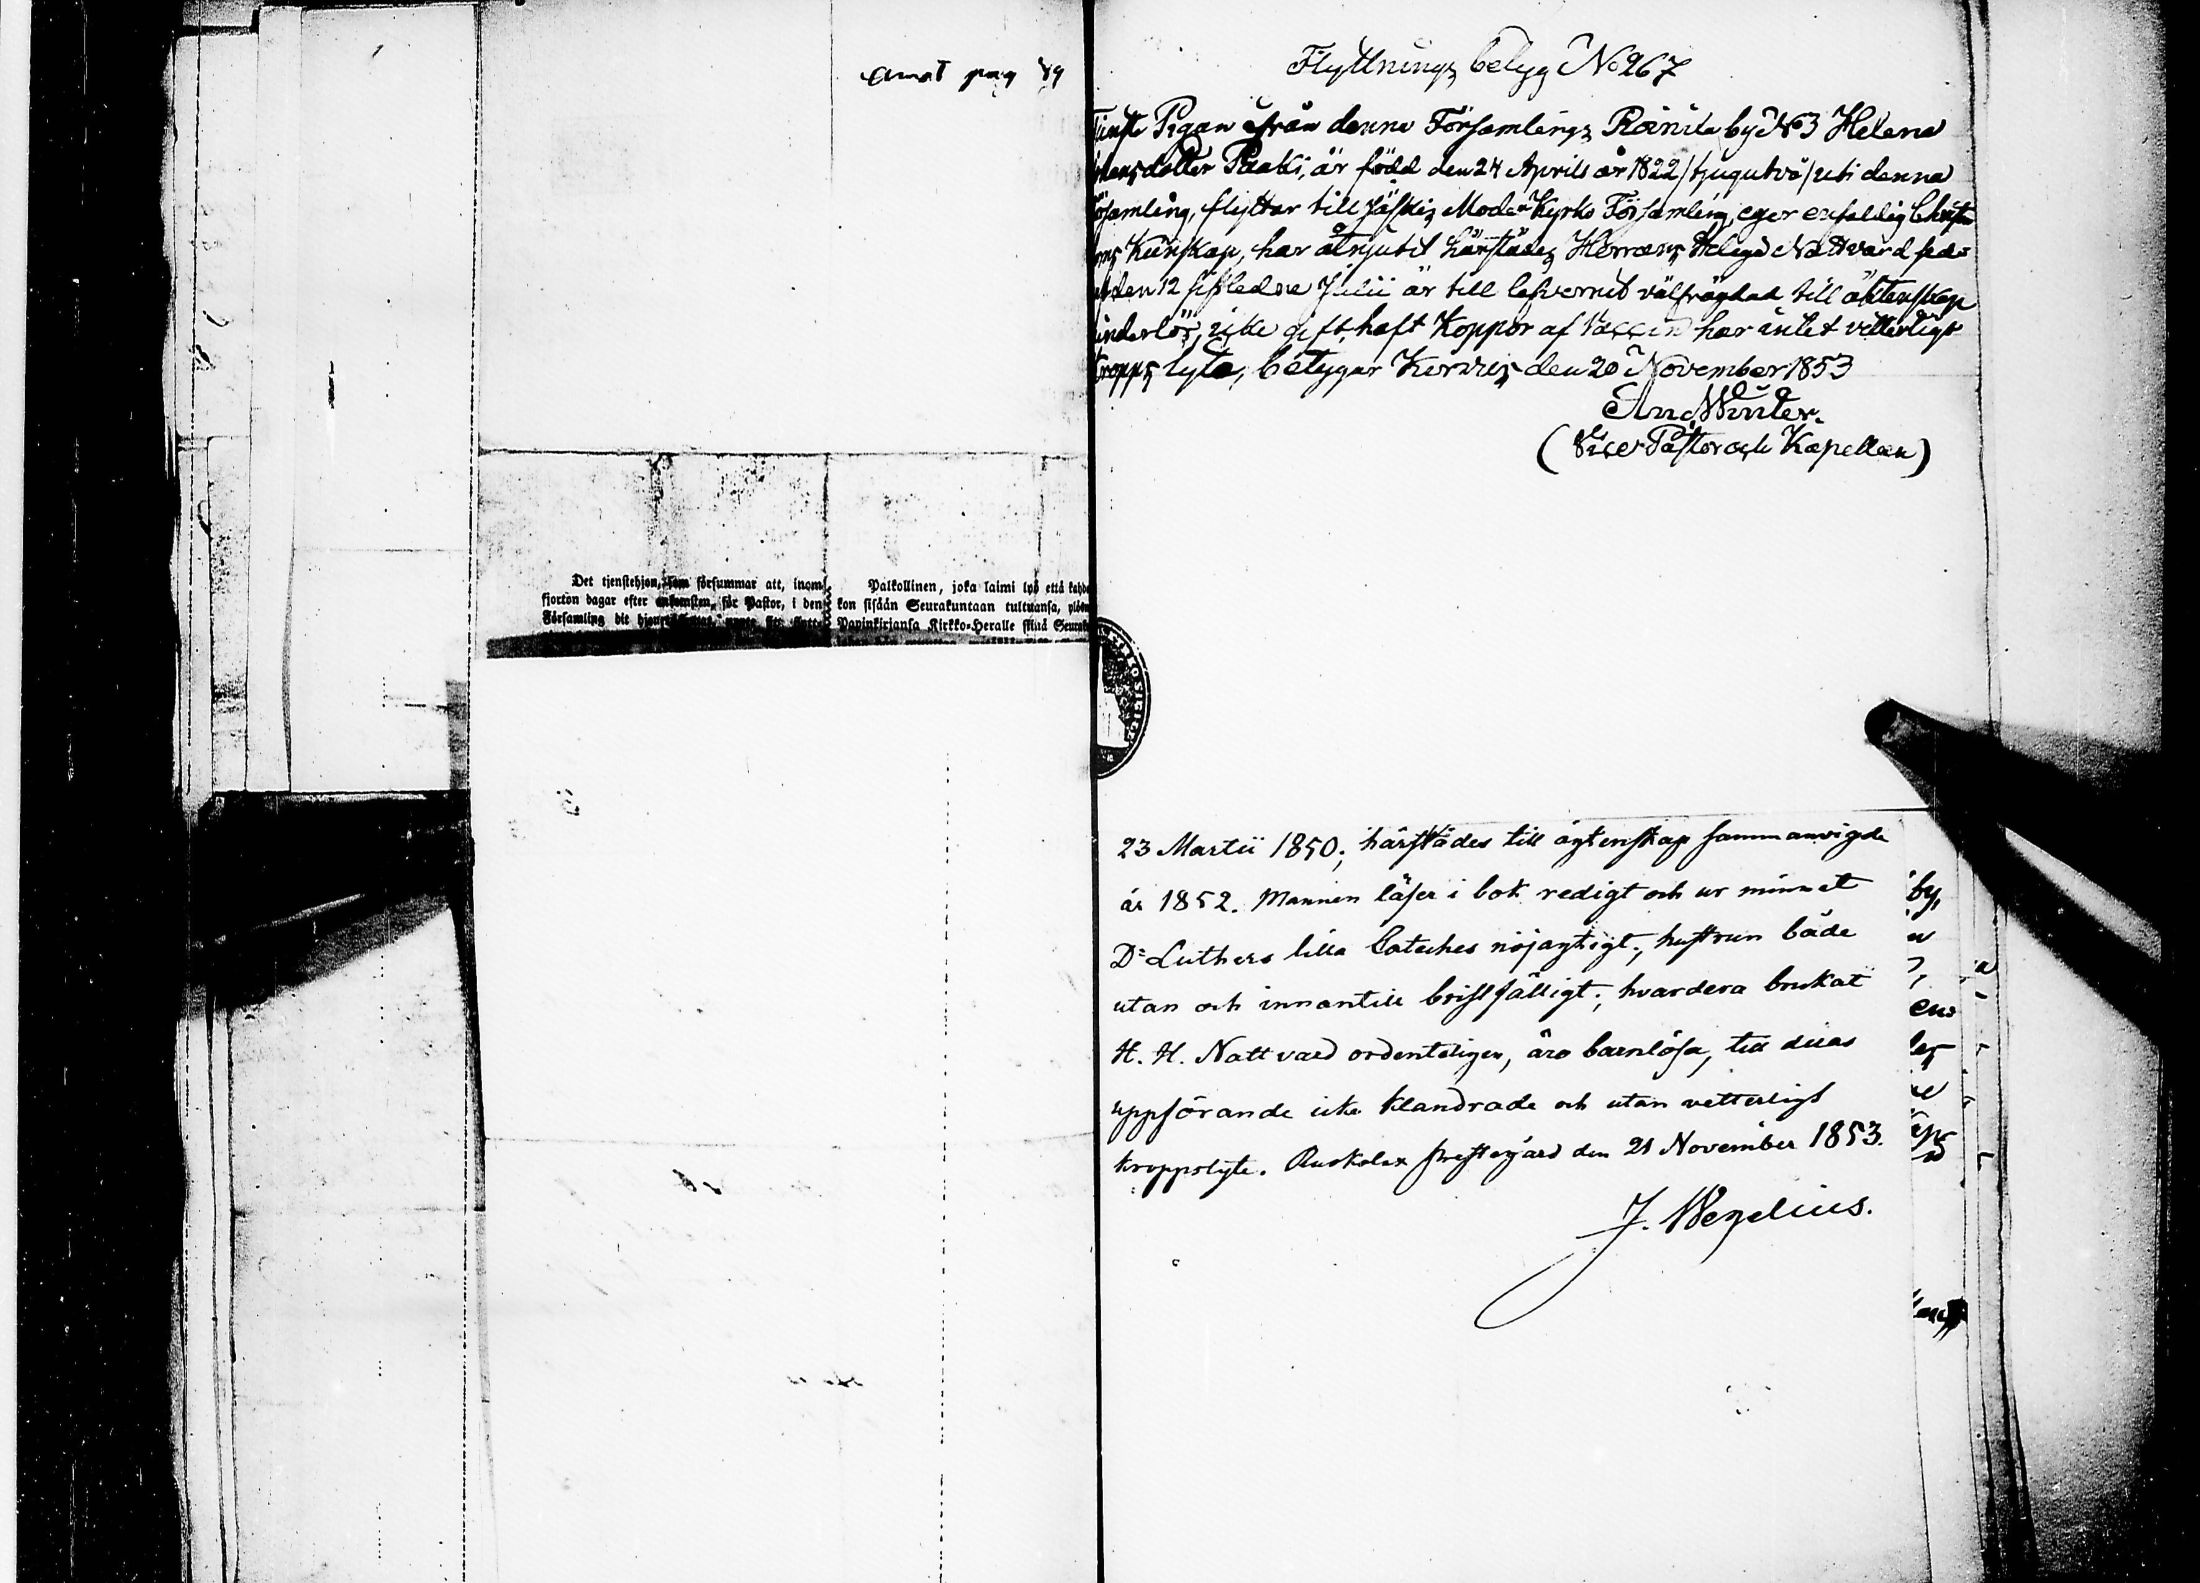 amot pag 49
Det tjenstehjon, som försummar att, inom
fjorton dagar efter ankomsten, för Pastor, i den
Församling dit
Palkollinen, joka laimi lyö että
kon sisään Seurakuntaan tultuansa,
Papinkirjansa Kirkko-Heralle siinä
Flyttnings betyg No 267
Pigan ifrån denne Församlings Rainila by No 3 Helena
dotter Raaki, är född den 24 Aprils år 1822 / tjugutvå / uti denna
församling, flyttar till Jäskis Moder Kyrko Församling, eger enfaldig
Kunskap, har åtnjutit härstädes Herrans Heliga Nattvard
den 12 sistledne Julii är till lefvernet välfrägdad till äktenskap
hinderlös, icke gift, haft Koppor af Vaccin har intet vetterligt
kropps lyte, betygar Kirvus den 20 November 1853
And Winter.
(Vice Pastor och Kapellan)
23 Martii 1850; härstädes till ägtenskap sammanvigde
år 1852. Mannen läser i bok redigt och ur minnet
Dr Luthers lilla Cateches nöjagtigt; hustrun både
utan och innantill bristfälligt; hvardera brukat
H. H. Nattvard ordenteligen, äro barnlösa, till deras
uppförande icke klandrade och utan vetterligt
kroppslyte. Ruokolax prestegård den 21 November 1853.
J. Wegelius.
by,